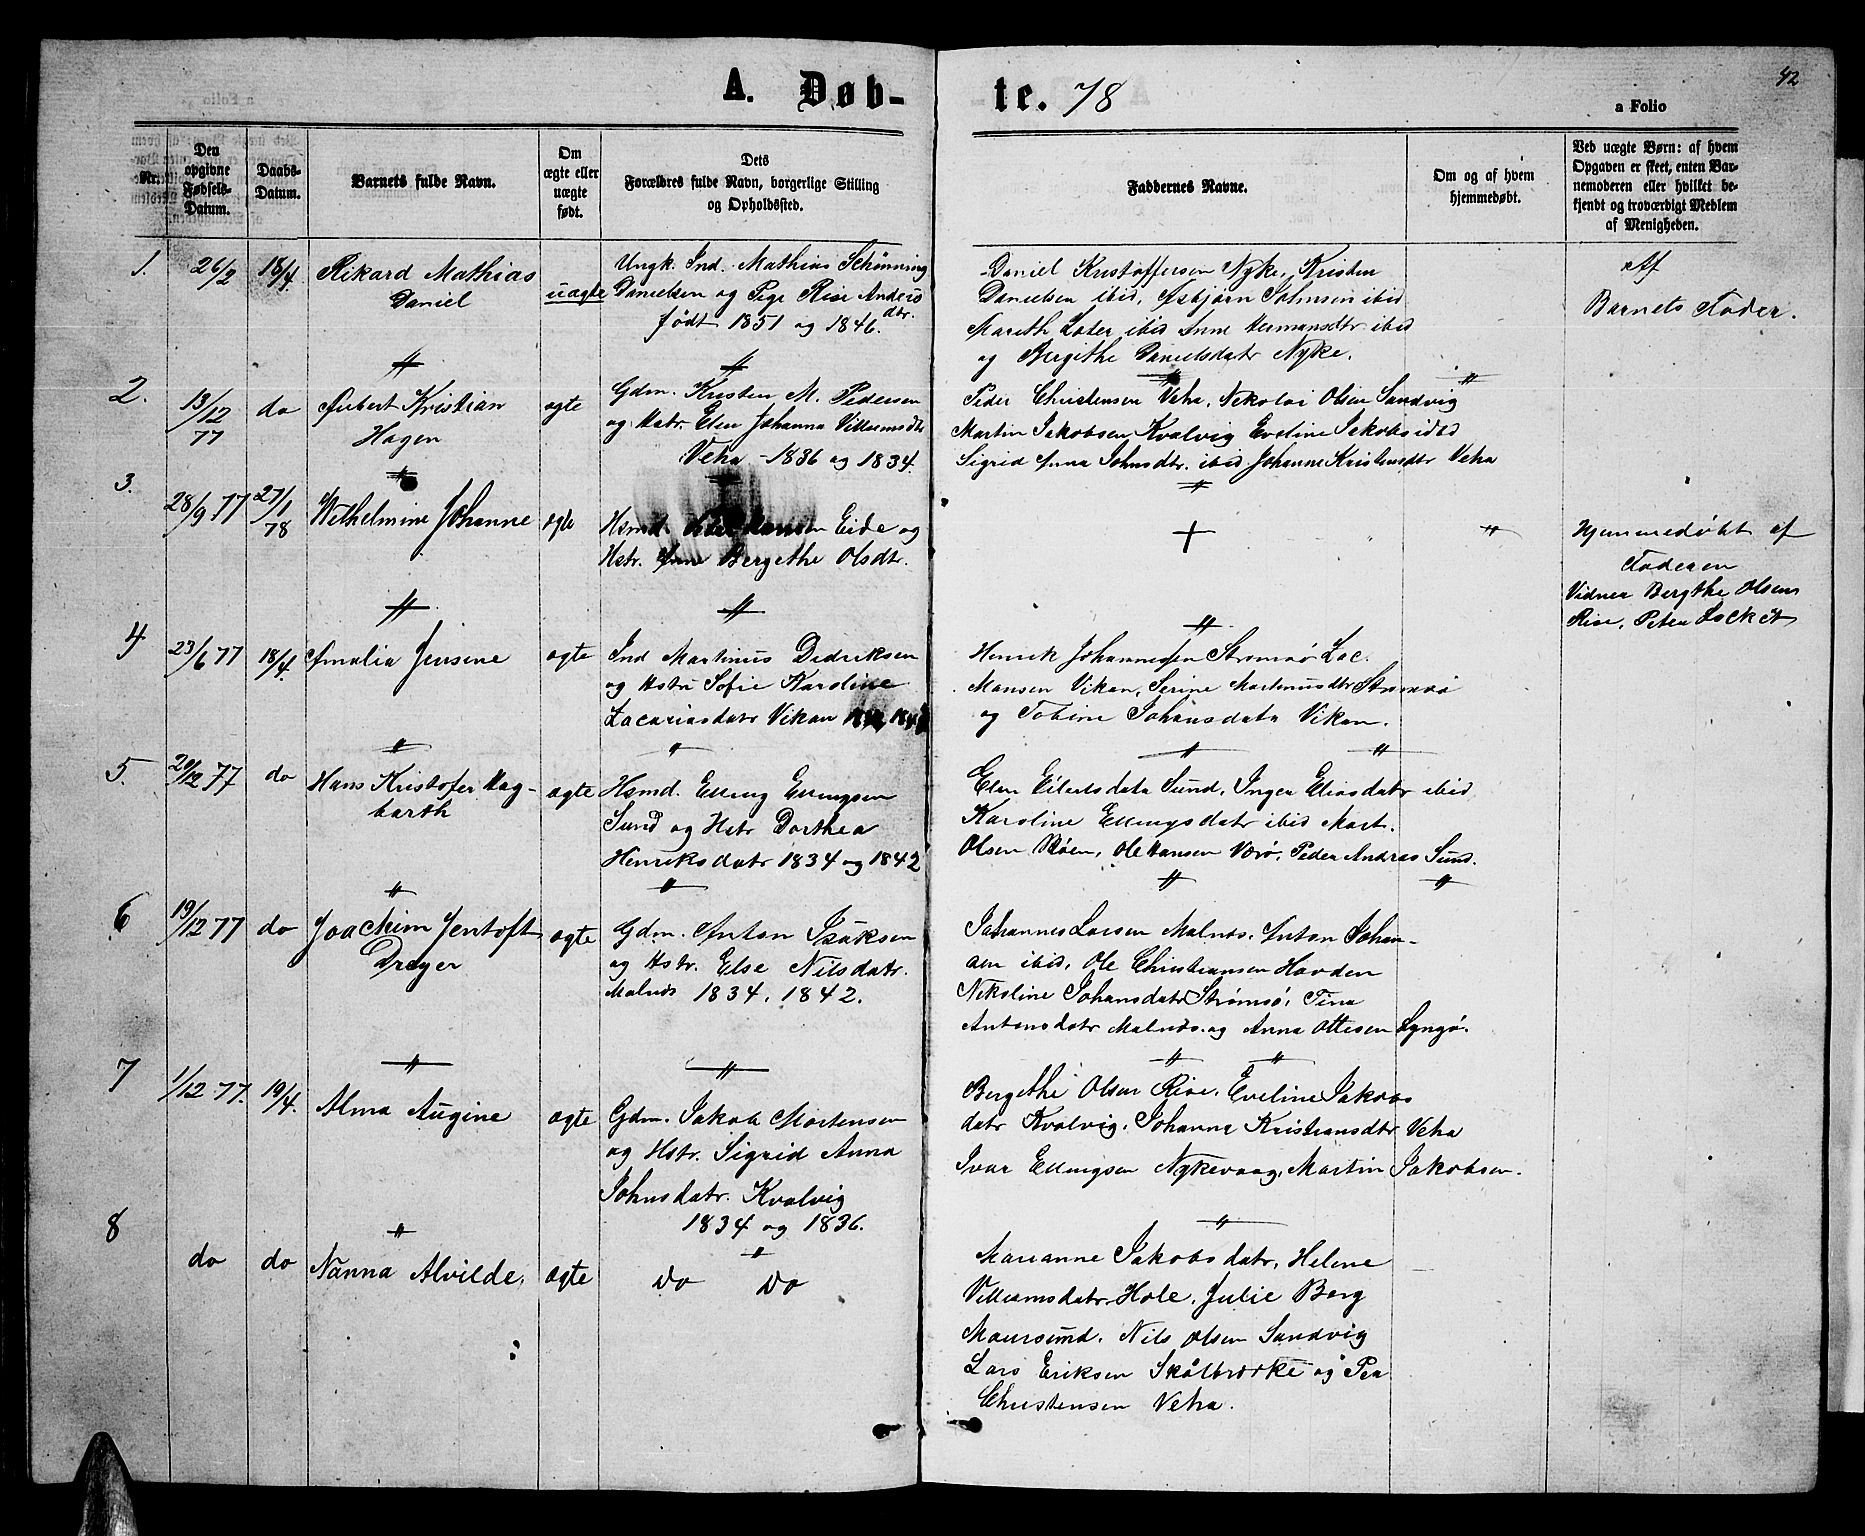 42
A. Døb-
te. 78
a Folio
Nr.
Den
opgivne
Fødsels-
Datum.
Daabs-
Datum.
Barnets fulde Navn.
Om
ægte eller
uægte
født.
Dets
Forældres fulde Navn, borgerlige Stilling
og Opholdssted.
Faddernes Navne.
Om og af hvem
hjemmedøbt.
Ved uægte Børn: af hvem
Opgaven er skeet, enten Bar-
nemoderen eller hvilket be-
kjendt og troværdigt Medlem
af Menigheden.
1.
26/2
18/4
Rikard Mathias
Daniel
uægte
Ungk. Ind. Mathias Schønning
Danielsen og Pige Rise Anders
dtr.
født 1851 og 1846.
Daniel Kristoffersen Nyke, Kristen
Danielsen ibid, Asbjørn Johnsen ibid
Mareth Loder ibid Anne Hermansdtr ibid
og Bergithe Danielsdatr Nyke.
Af
Barnets Fader.
2.
13/12
77
do
Hagen
ægte
Gdm. Kristen M. Pedersen
og Hstr. Elen Johanna Villumsdtr
Veha - 1836 og 1834.
Peder Christensen Veha, Nikolai Olsen Sandvig
Martin Jakobsen Kvalvig Eveline Jakobs ibid
Sigrid Anna Johnsdtr. ibid Johanne Kristensdtr Veha
3.
28/9 77
27/1
78
Wilhelmine Johanne
ægte
Hsmd. Eide og
Hstr. Anne Bergethe Olsdtr.
+
"
Hjemmedøbt af
Faderen
Vidner Bergthe Olsen
Rise, Peter Lockert
4
23/6 77
18/4
Amalia Jensine
ægte
Ind Martinus Didriksen
og Hstr Sofie Karoline
Zacariasdatr Vikan
Henrik Johannessen Strømsø Zac.
Hansen Vikan, Serine Martinusdtr Strømsø
og Tobine Johansdatr Vikan.
5.
20/12 77
do
Hans Kristofer Hag-
barth
ægte
Hsmd. Elling Ellingsen
Sund og Hstr Dorthea
Henriksdatr 1834 og 1842
Elen Eilertsdatr Sund, Inger Eliasdatr ibid
Karoline Ellingsdatr ibid Mart.
Olsen Skøen, Ole Hansen Værø, Peder Andreas Sund.
6
19/12 77
do
Joachim Jentoft
Dreyer
ægte
Gdm. Anton Isaksen
og Hstr. Else Nilsdatr.
Malnes 1834. 1842.
Johannes Larsen Malnes, Anton Johan-
sen ibid, Ole Christiansen Hovden
Nikoline Johansdatr Strømsø, Tina
Antonsdatr Malnes og Anna Ottesen Lyngø.
7
1/12 77.
19/4.
Alma Augine
ægte
Gdm. Jakob Mortensen
og Hstr. Sigrid Anna
Johnsdatr. Kvalvig
1834 og 1836.
Bergethe Olsen Rise, Eveline Jakobs
datr Kvalvig, Johanna Kristiansdtr Veha
Ivar Ellingsen Nykevaag, Martin Jakobsen.
8
do
do
Nanna Alvilde,
ægte
Do Do
Marianne Jakobsdatr, Helene
Villumsdatr Hole, Julie Berg
Maursund. Nils Olsen Sandvig
Lars Eriksen Skålbrække og Peder
Christensen Veha.